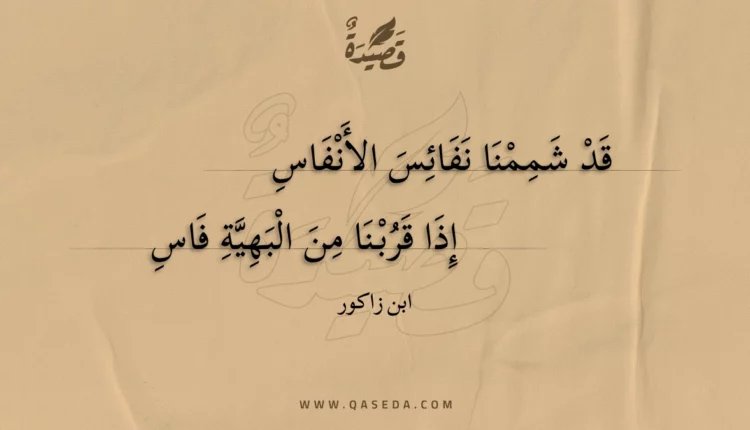 قَصِيدَةٌ
قَدْ شَمِمْنَا نَفَائِسَ الأَنْفَاسِ
إِذَا قَرُبْنَا مِنَ الْبَهِيَّةِ فَاسِ
ابن زاكور
WWW.QASEDA.COM